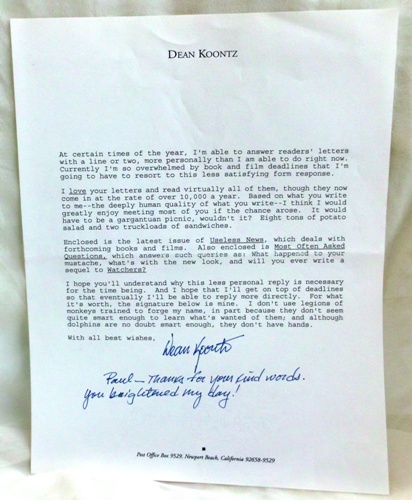 DEAN KOONTZ
At certain times of the year, I'm able to answer readers' letters
with a line or two, more personally than I am able to do right now.
Currently I'm so overwhelmed by book and film deadlines that I'm
going to have to resort to this less satisfying form response.
I love your letters and read virtually all of them, though they now
come in at the rate of over 10,000 a year. Based on what you write
to me--the deeply human quality of what you write--I think I would
greatly enjoy meeting most of you if the chance arose. It would
have to be a gargantuan picnic, wouldn't it? Eight tons of potato
salad and two truckloads of sandwiches.
Enclosed is the latest issue of Useless News, which deals with
forthcoming books and films. Also enclosed is Most Often Asked
Questions, which answers such queries as: What happened to your
mustache, what's with the new look, and will you ever write a
sequel to Watchers?
I hope you'll understand why this less personal reply is necessary
for the time being. And I hope that I'll get on top of deadlines
so that eventually I'll be able to reply more directly. For what
it's worth, the signature below is mine. I don't use legions of
monkeys trained to forge my name, in part because they don't seem
quite smart enough to learn what's wanted of them; and although
dolphins are no doubt smart enough, they don't have hands.
With all best wishes,
Dean Koontz
Paul — Thanks for your kind words.
You brightened my day!
Post Office Box 9529, Newport Beach, California 92658-9529